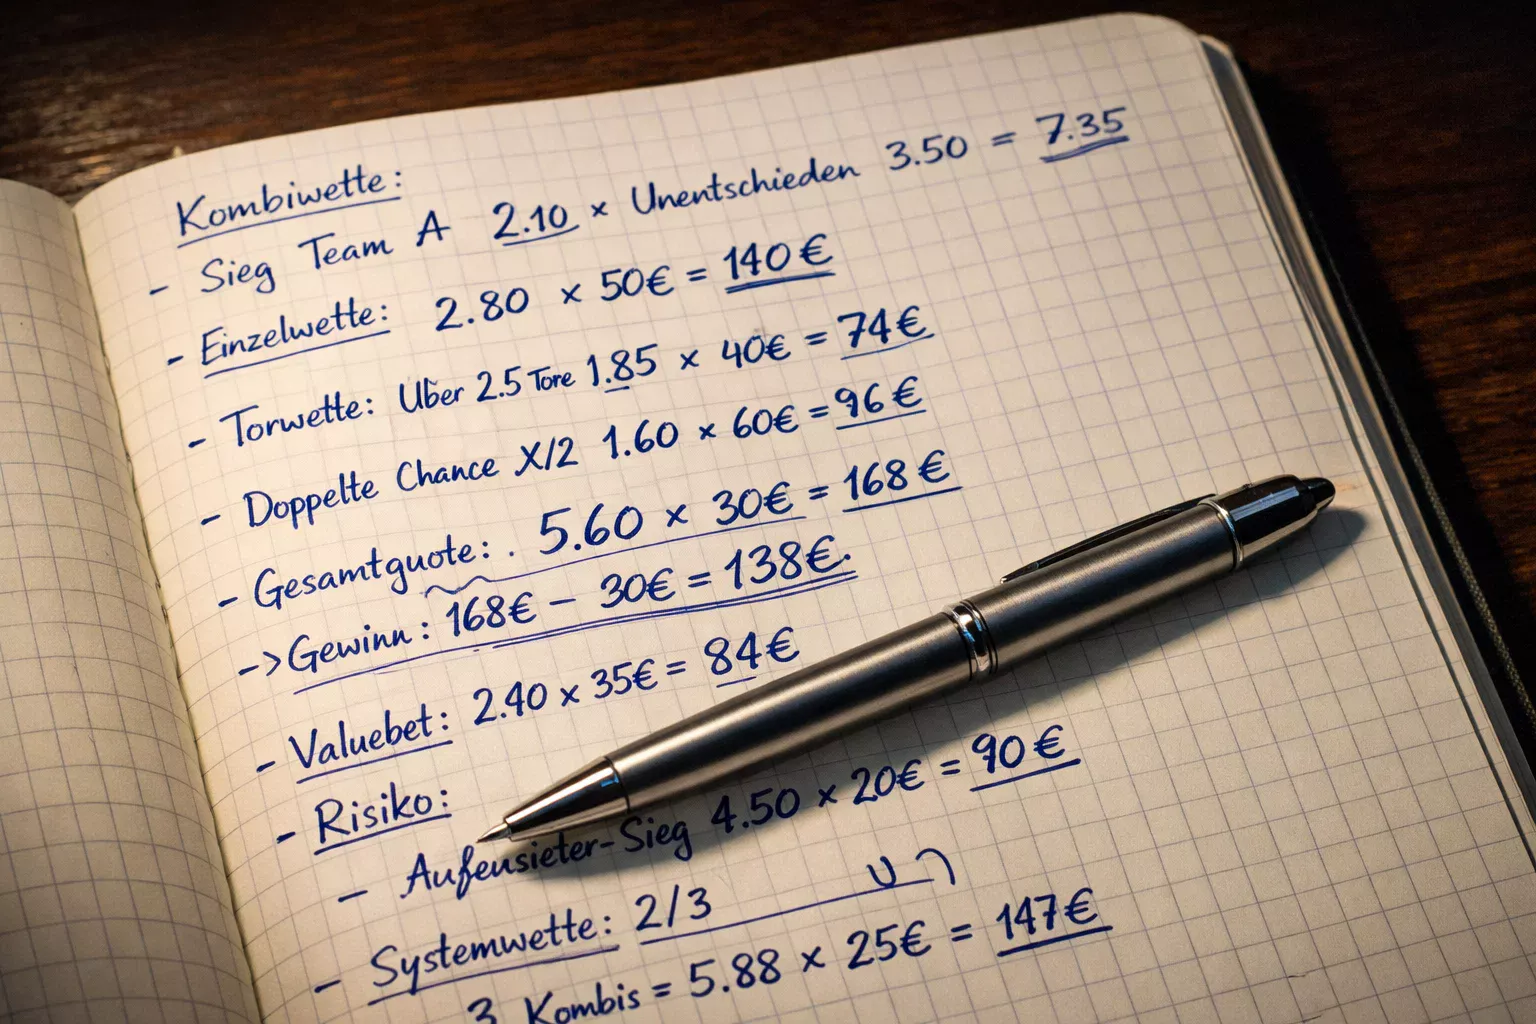 Kombiwette:
- Sieg Team A 2.10 × Unentschieden 3.50 = 7.35
- Einzelwette: 2.80 × 50€ = 140€
- Torwette: Uber 2.5 Tore 1.85 × 40€ = 74€
- Doppelte Chance X/2 1.60 × 60€ = 96€
- Gesamtguote: . 5.60 × 30€ = 168€
-> Gewinn: 168€ - 30€ = 138€.
- Valuebet: 2.40 × 35€ = 84€
- Risiko:
- Aufensieter-Sieg 4.50 × 20€ = 90€
- Systemwette: 2/3
3 Kombis = 5.88 × 25€ = 147€